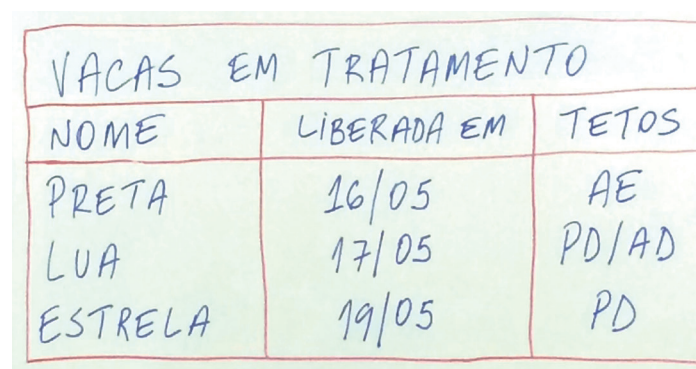 VACAS EM TRATAMENTO
NOME LIBERADA EM TETOS
PRETA 16/05 AE
LUA 17/05 PD/AD
ESTRELA 19/05 PD